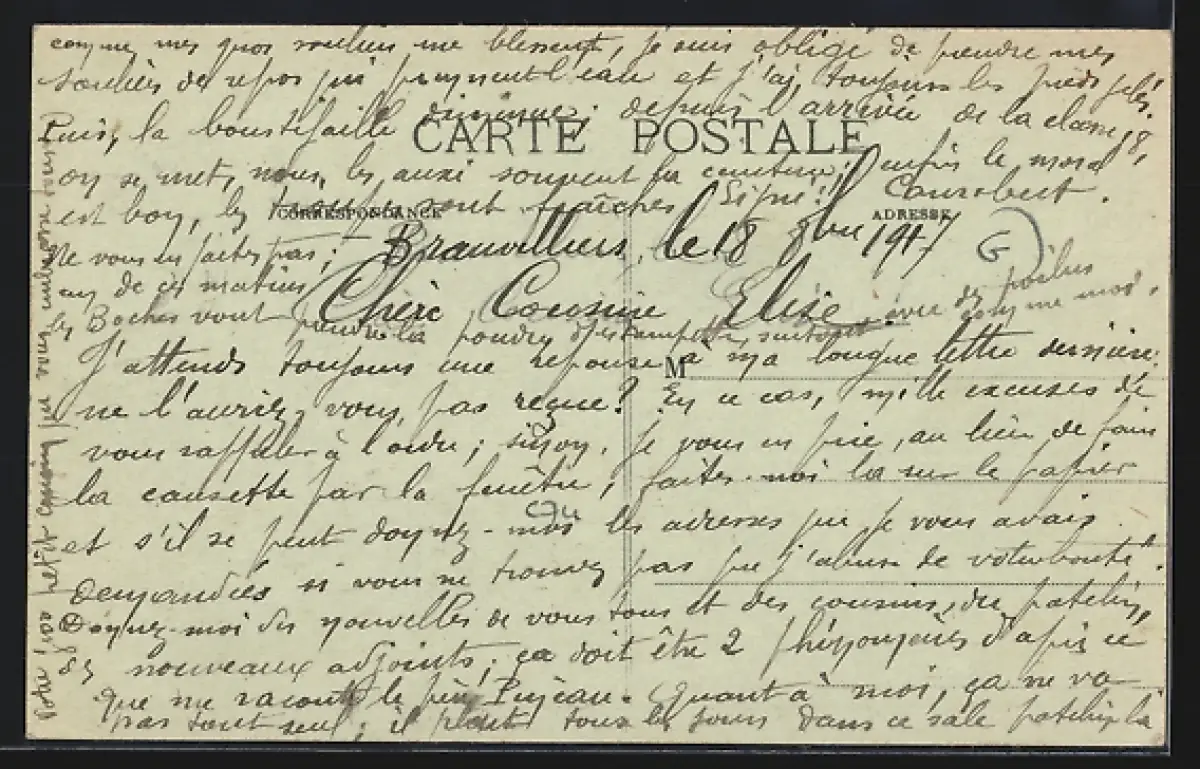 comme mes gros souliers me blessent, je suis obligé de prendre mes
souliers de repos qui prennent l'eau et j'ai toujours les pieds gelés.
Puis, la boustifaille diminue; depuis l'arrivée de la classe 18,
CARTE POSTALE
on se met, nous, les aussi souvent la ceinture; Enfin le moral
est bon, les sont fraîches Signé: Canrobert.
CORRESPONDANCE
ADRESSE
Ne vous en faites pas;
Brauvilliers, le 18 1917
G
un de ces matins
Chère Cousine Elise
les Boches vont prendre la poudre d'escampette, surtout avec des poilus
comme moi.
J'attends toujours une réponse à ma longue lettre dernière:
M
ne l'auriez-vous pas reçue? En ce cas, mille excuses de
vous rappeler à l'ordre; sinon, je vous en prie, au lieu de faire
la causette par la fenêtre, faites-moi la sur le papier
et s'il se peut donnez-moi les adresses que je vous avais
demandées si vous ne trouvez pas que j'abuse de votre bonté.
Donnez-moi des nouvelles de vous tous et des cousins, du patelin,
des nouveaux adjoints; ça doit être 2 phénomènes d'après ce
que me raconte le père Pujeau. Quant à moi, ça ne va
pas tout seul; il pleut tous les jours dans ce sale patelin-là
Votre petit cousin qui vous embrasse